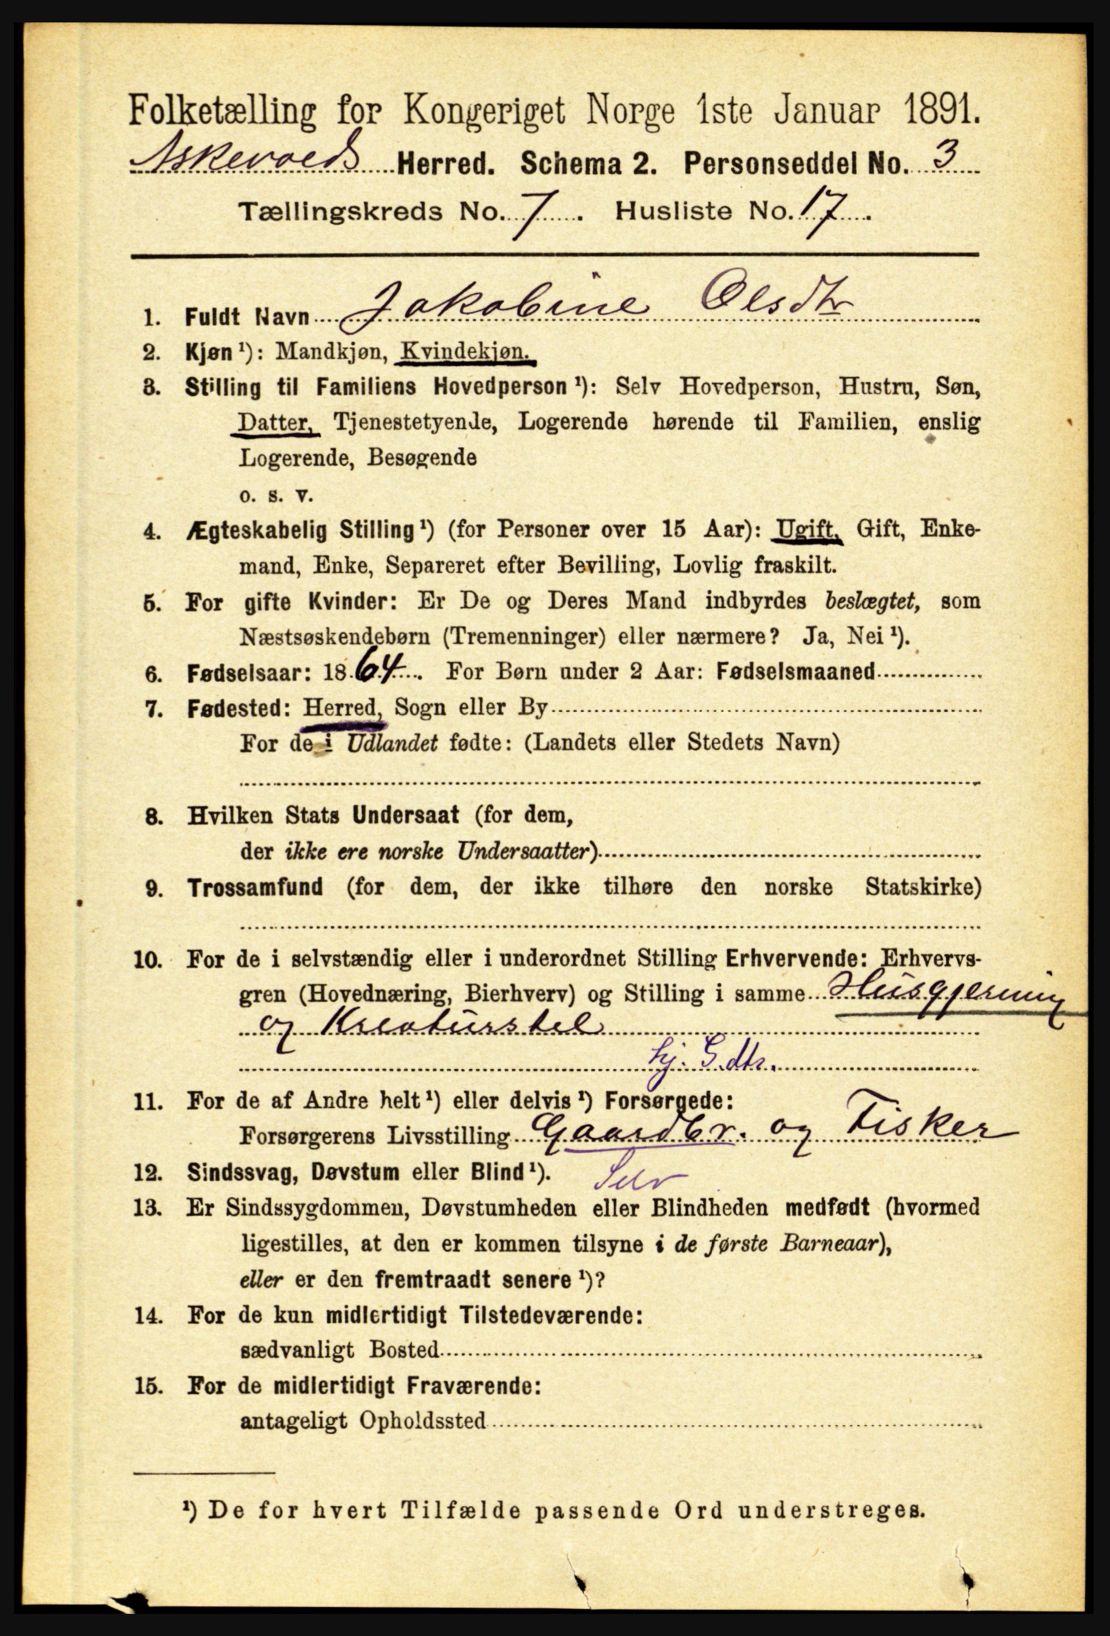 Folketælling for Kongeriget Norge 1ste Januar 1891.
Askevolds Herred. Schema 2. Personseddel No. 3
Tællingskreds No. 7. Husliste No. 17.
1. Fuldt Navn Jakobine Olsdtr
2. Kjøn ¹): Mandkjøn, Kvindekjøn.
3. Stilling til Familiens Hovedperson ¹): Selv Hovedperson, Hustru, Søn,
Datter, Tjenestetyende, Logerende hørende til Familien, enslig
Logerende, Besøgende
o. s. v.
4. Ægteskabelig Stilling ¹) (for Personer over 15 Aar): Ugift, Gift, Enke-
mand, Enke, Separeret efter Bevilling, Lovlig fraskilt.
5. For gifte Kvinder: Er De og Deres Mand indbyrdes beslægtet, som
Næstsøskendebørn (Tremenninger) eller nærmere? Ja, Nei ¹).
6. Fødselsaar: 1864. For Børn under 2 Aar: Fødselsmaaned
7. Fødested: Herred, Sogn eller By
For de i Udlandet fødte: (Landets eller Stedets Navn)
8. Hvilken Stats Undersaat (for dem,
der ikke ere norske Undersaatter)
9. Trossamfund (for dem, der ikke tilhøre den norske Statskirke)
10. For de i selvstændig eller i underordnet Stilling Erhvervende: Erhvervs-
gren (Hovednæring, Bierhverv) og Stilling i samme Husgjerning
og Kreaturstel
hj. G.dtr.
11. For de af Andre helt ¹) eller delvis ¹) Forsørgede:
Forsørgerens Livsstilling Gaardbr. og Fisker
12. Sindssvag, Døvstum eller Blind ¹). Selv
13. Er Sindssygdommen, Døvstumheden eller Blindheden medfødt (hvormed
ligestilles, at den er kommen tilsyne i de første Barneaar),
eller er den fremtraadt senere ¹)?
14. For de kun midlertidigt Tilstedeværende:
sædvanligt Bosted
15. For de midlertidigt Fraværende:
antageligt Opholdssted
¹) De for hvert Tilfælde passende Ord understreges.